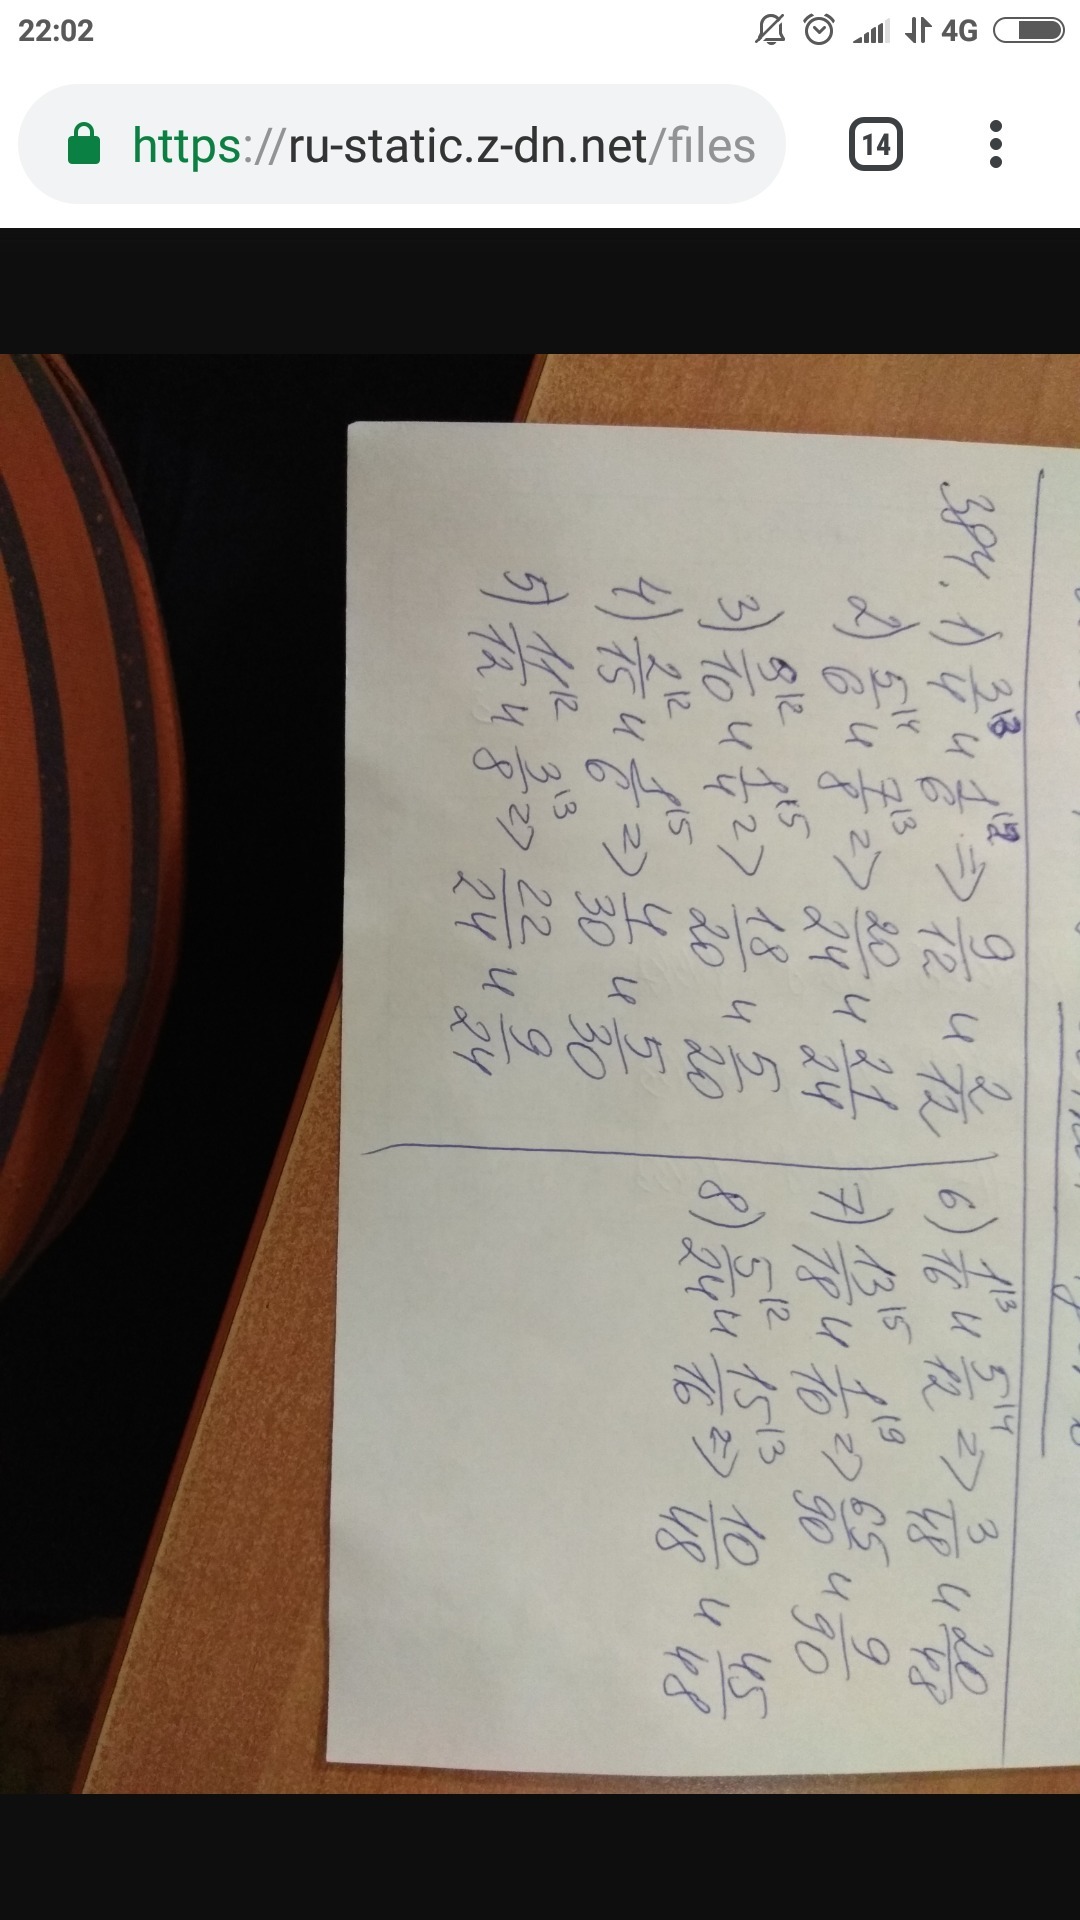 22:02 4G
https://ru-static.z-dn.net/files 14
384. 1) 3/4 и 1/6 => 9/12 и 2/12
2) 5/6 и 7/8 => 20/24 и 21/24
3) 9/10 и 1/4 => 18/20 и 5/20
4) 2/15 и 1/6 => 4/30 и 5/30
5) 11/12 и 3/8 => 22/24 и 9/24
6) 1/16 и 5/12 => 3/48 и 20/48
7) 13/18 и 1/10 => 65/90 и 9/90
8) 5/24 и 15/16 => 10/48 и 45/48